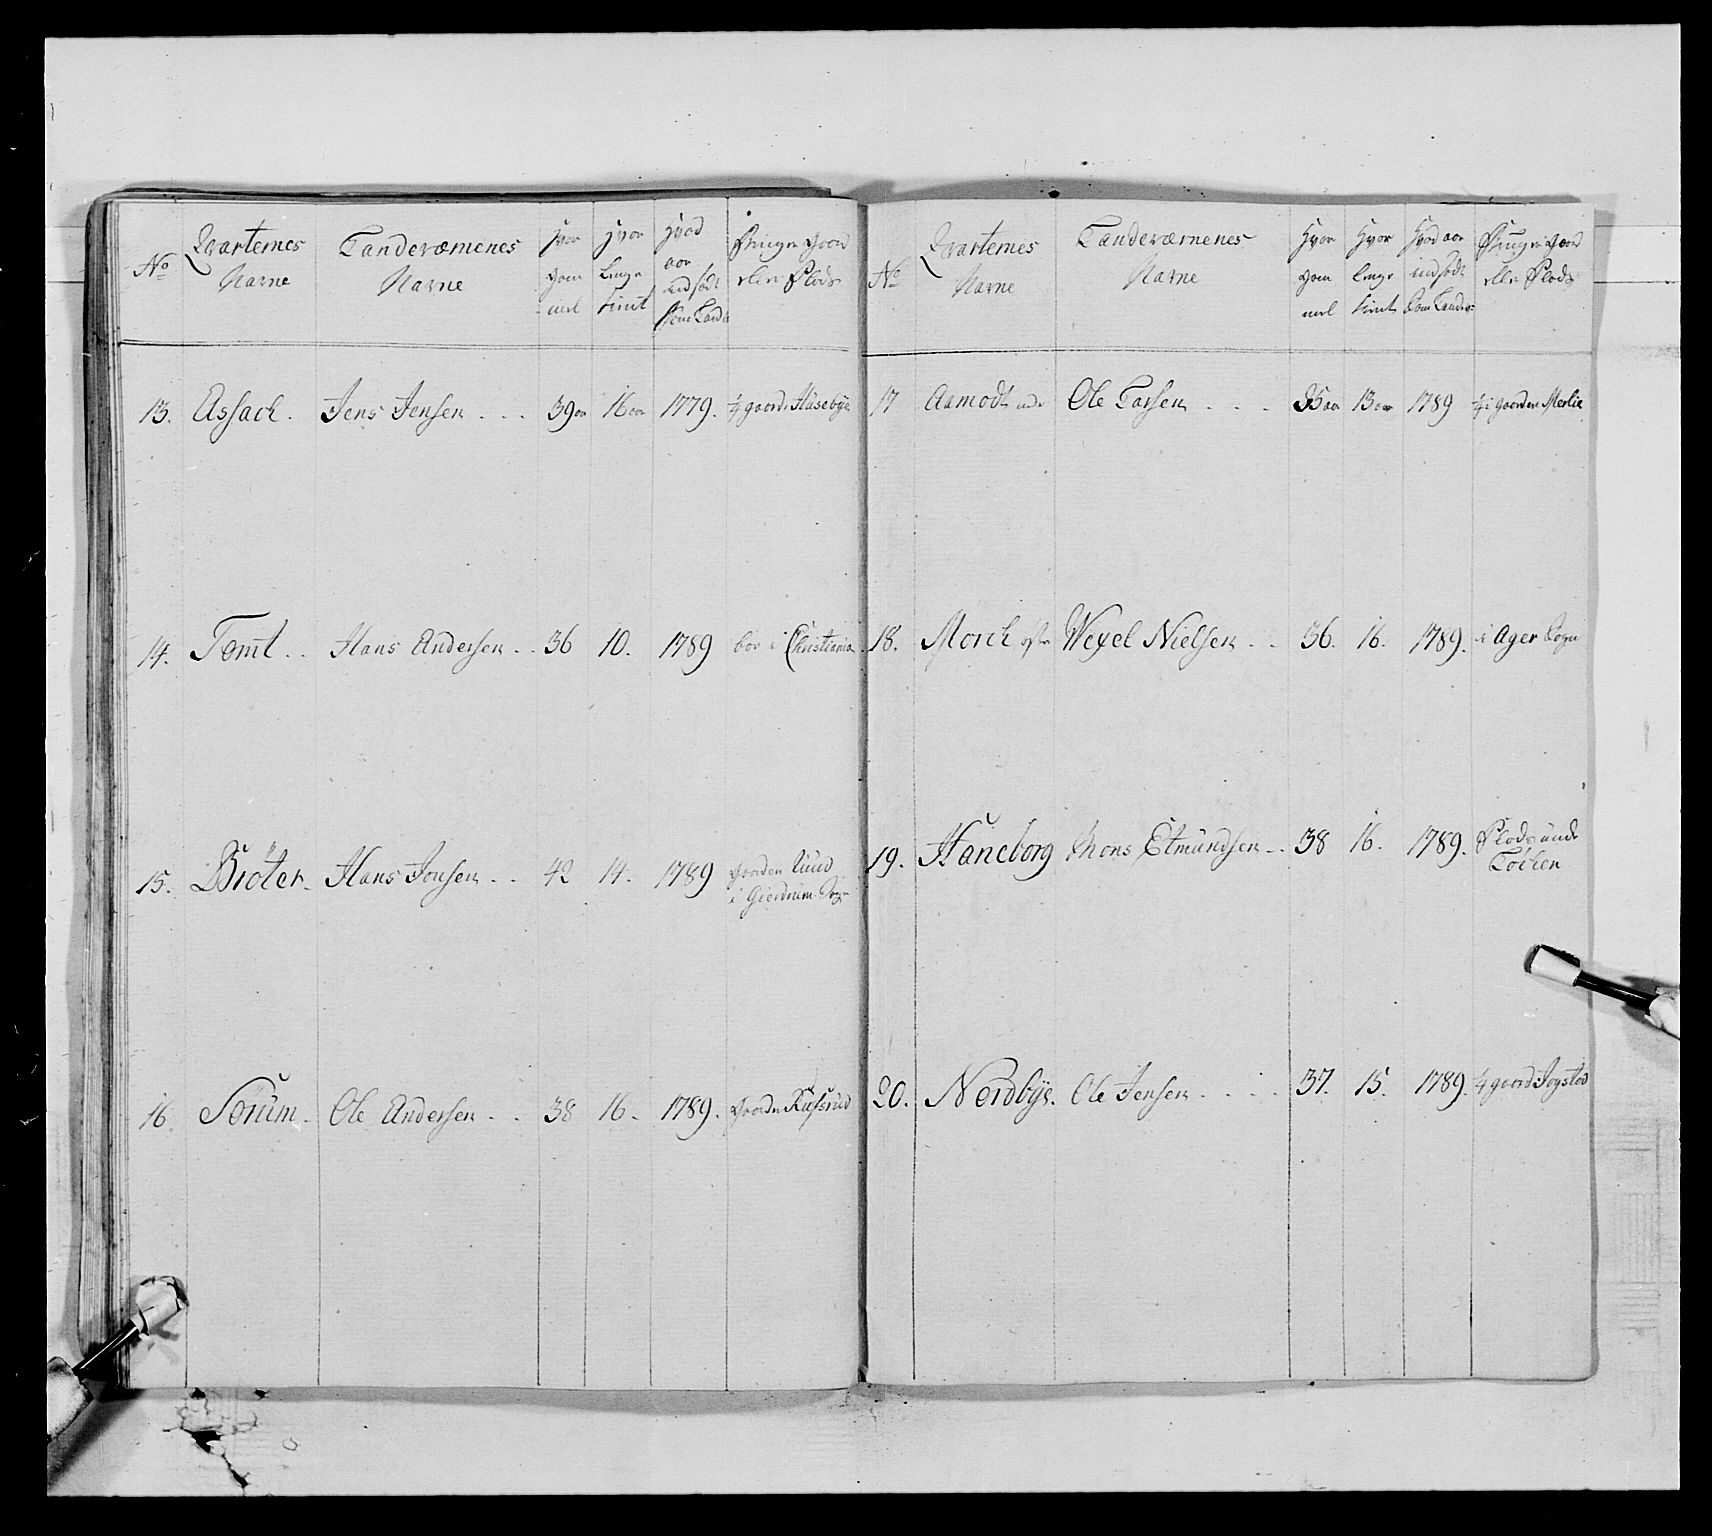 No
Qvarternes
Navne
Landeværnenes
Navne
Hvor
gam
mel
Hvor
længe
tient
Hvad
aar
indsødt
som Land
gaard
eller Plads
13. Assack. Jens Jensen . . . 39 aar 16 aar 1779. ½ gaard Husebye
14. Tomt . . Hans Andersen . . 36 10. 1789 bor i Christiania
15. Bröter. Hans Jonsen . . 42 14. 1789 gaarden Lund
i Gierdrum Sogn
16. Sorum. Ole Andersen . . 38 16. 1789. gaarden
No
Qvarternes
Navne
Landeværnenes
Navne
Hvor
gam
mel
Hvor
længe
tient
Hvad aar
indsødt
som Landev:
gaard
eller Plads
17 Aamodt Ole Larsen . . . 35 aar 13 aar 1789 i gaarden Merlie
18. Morck Wexel Nielsen . . 36. 16. 1789. i Ager Sogn
19. Haneborg Mons Etmundsen . . 38 16. 1789. Plads under
Løchen
20. Nordbye. Ole Jensen . . . . 37. 15. 1789. gaard Jogstad